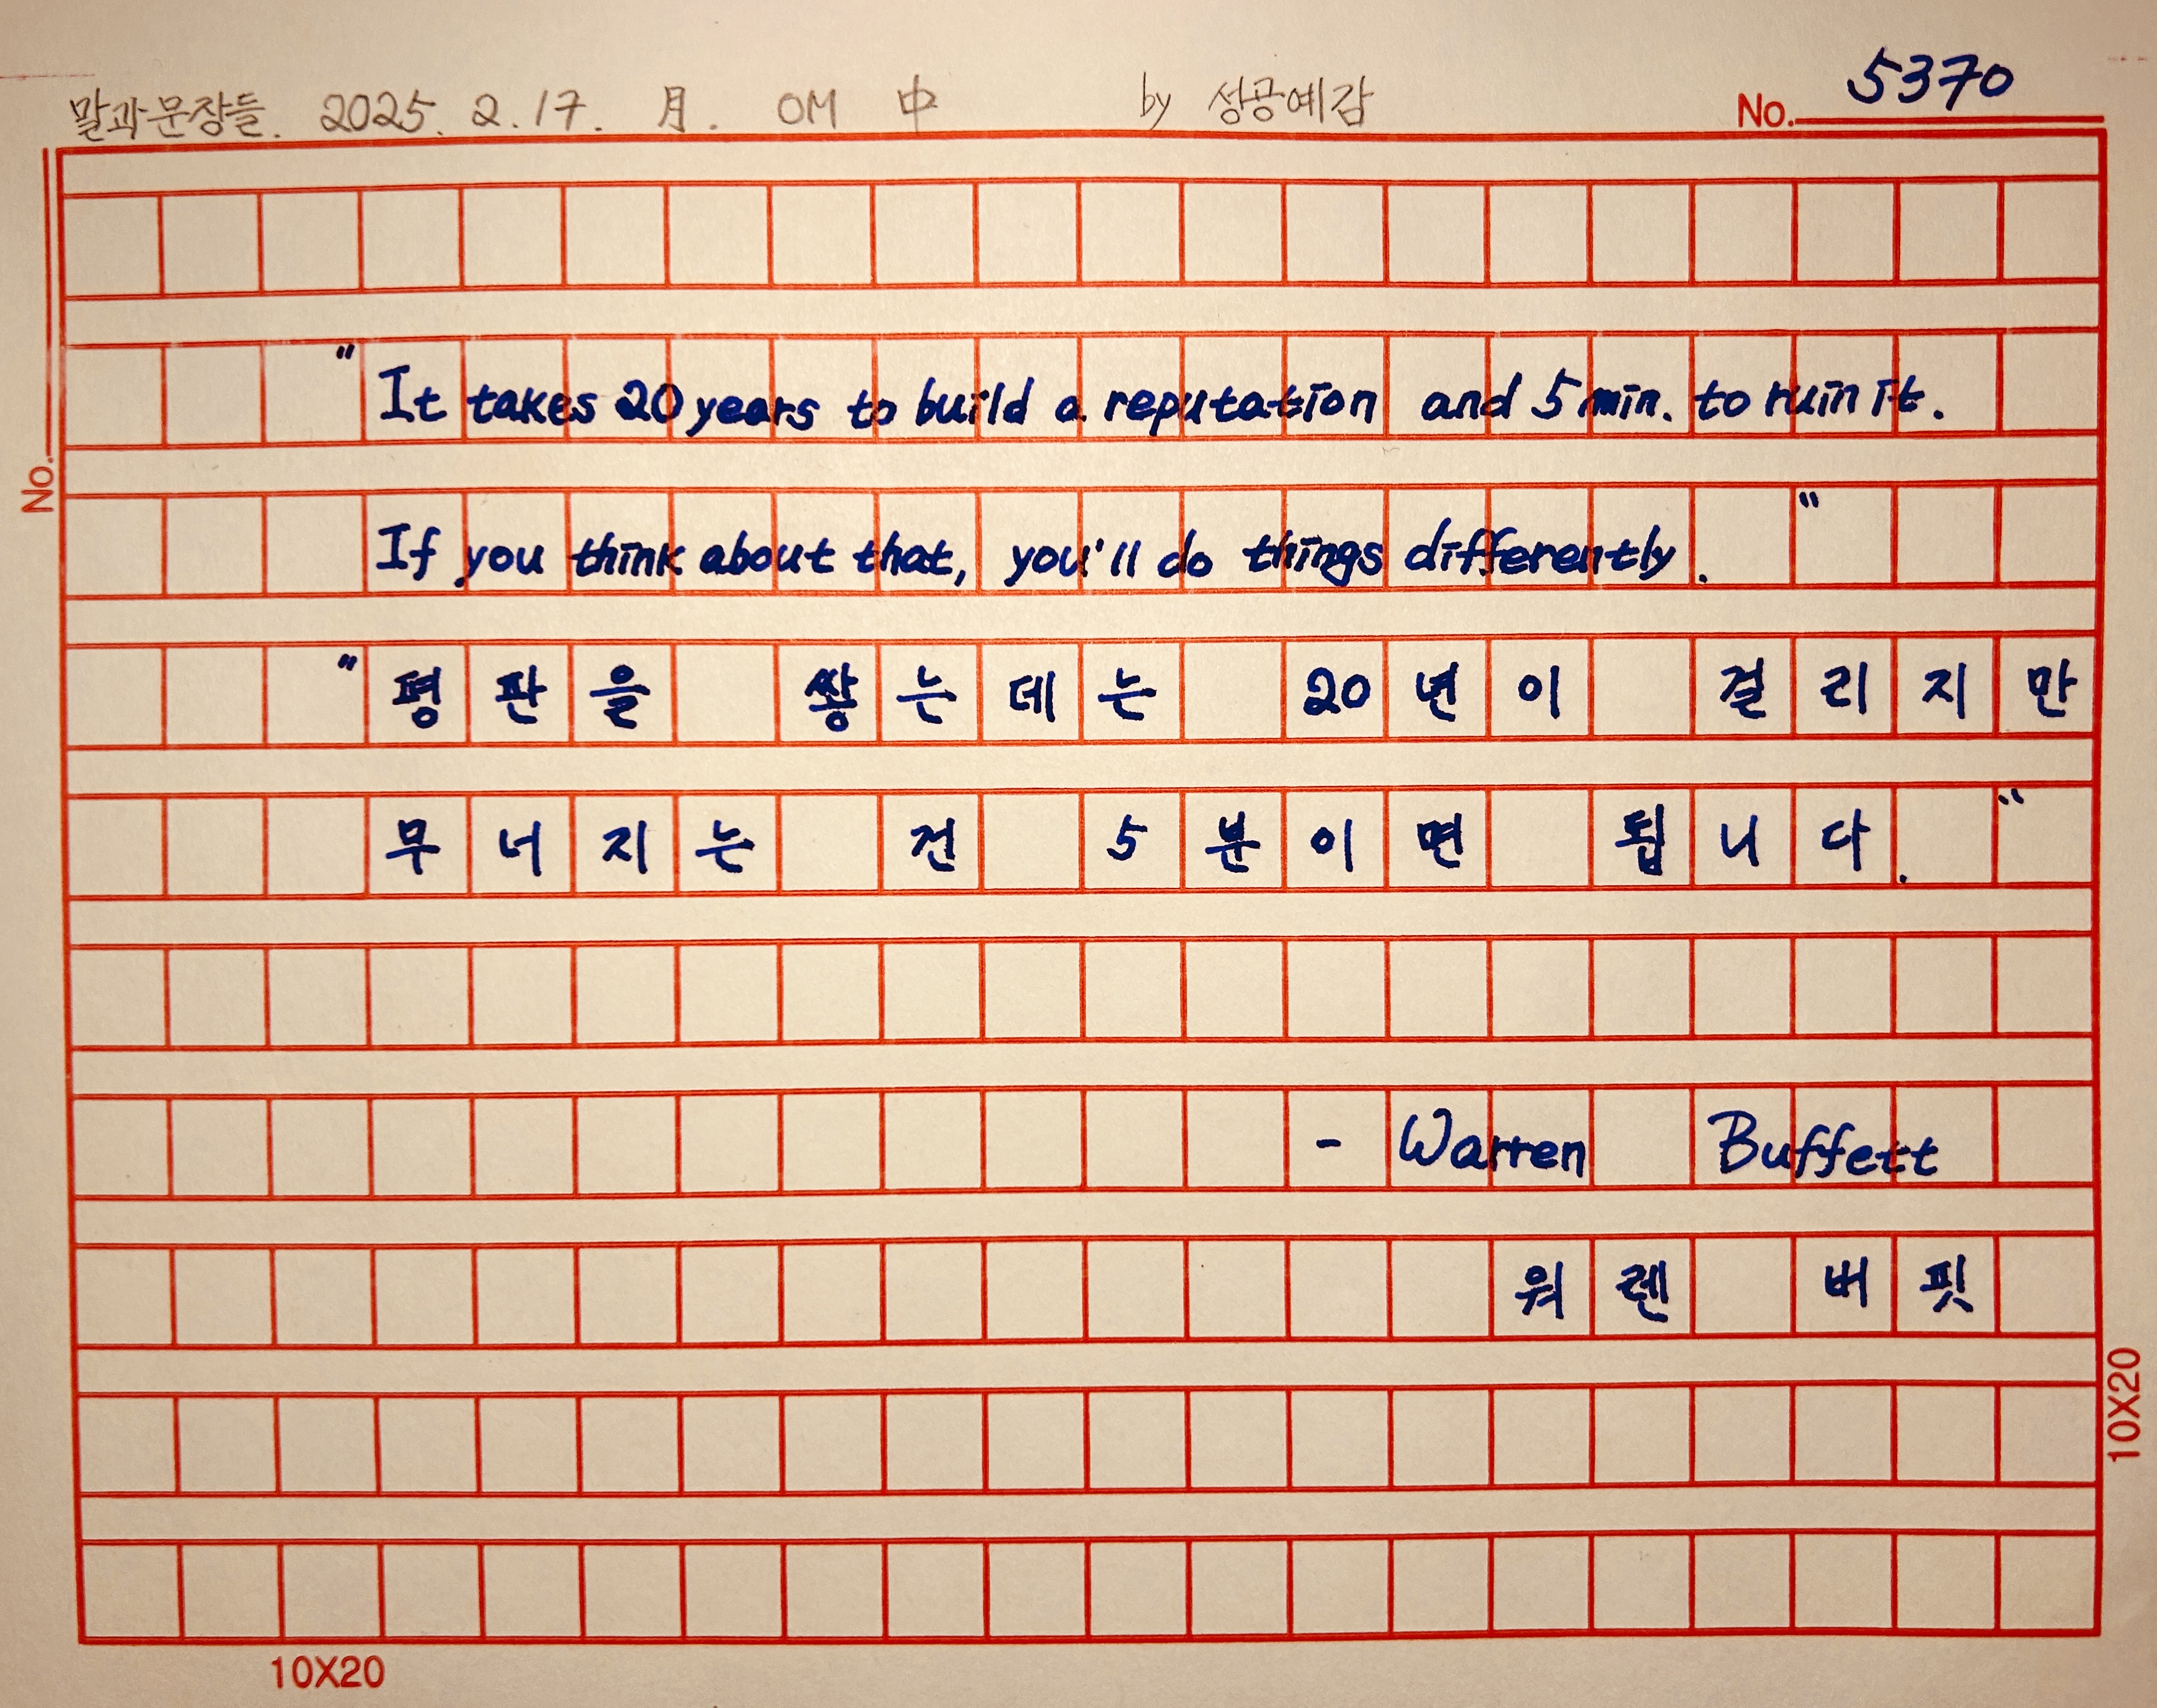 말과문장들. 2025. 2. 17. 月. OM 中 by 성공예감 No. 5370
No.
"It takes 20 years to build a reputation and 5 min. to ruin it.
If you think about that, you'll do things differently."
"평판을 쌓는데는 20년이 걸리지만
무너지는 건 5분이면 됩니다."
- Warren Buffett
워렌 버핏
10X20
10X20